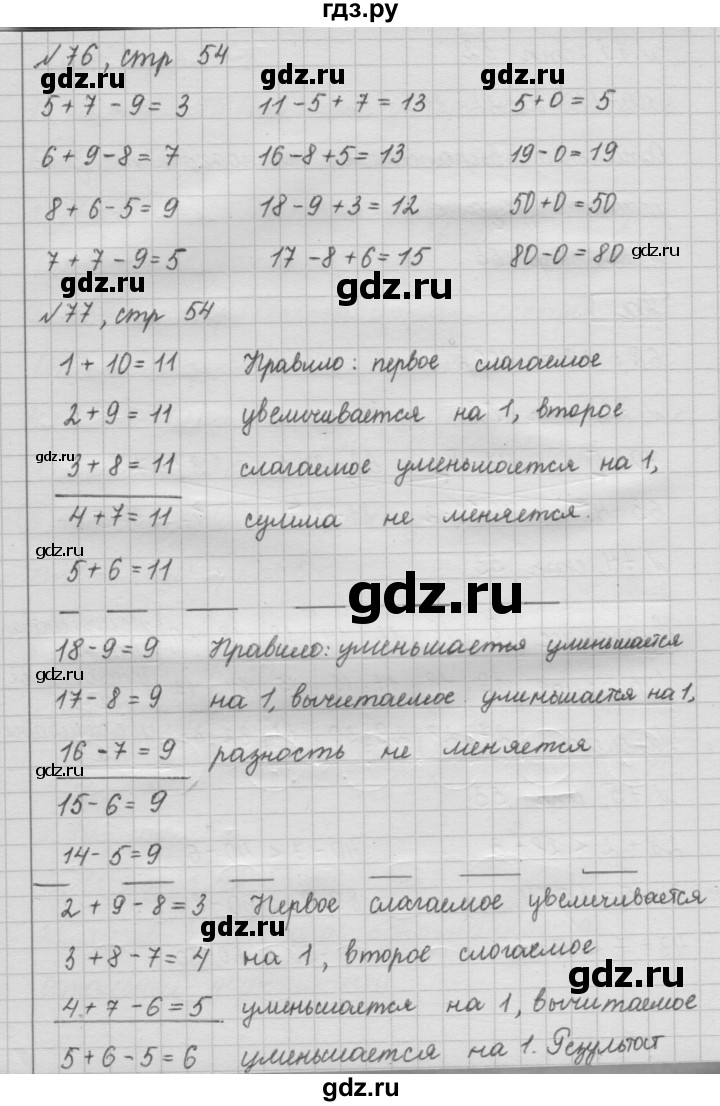 гдз.ру
№76, стр 54
gdz.ru gdz.ru gdz.ru
5+7-9=3 11-5+7=13 5+0=5
6+9-8=7 16-8+5=13 19-0=19
8+6-5=9 18-9+3=12 50+0=50
7+7-9=5 17-8+6=15 80-0=80 gdz.ru
gdz.ru gdz.ru
№77, стр 54
1+10=11 Правило: первое слагаемое
2+9=11 увеличивается на 1, второе
gdz.ru
3+8=11 слагаемое уменьшается на 1,
4+7=11 сумма не меняется.
gdz.ru
5+6=11
gdz.ru
18-9=9 Правило: уменьшается уменьшается
gdz.ru
17-8=9 на 1, вычитаемое уминьшается на 1,
16-7=9 разность не меняется
gdz.ru
15-6=9
14-5=9
2+9-8=3 Первое слагаемое увеличивается
gdz.ru
3+8-7=4 на 1, второе слогаемое
gdz.ru
4+7-6=5 уменьшается на 1, вычитаемое
5+6-5=6 уменьшается на 1. Результат
gdz.ru gdz.ru
гдз.ру